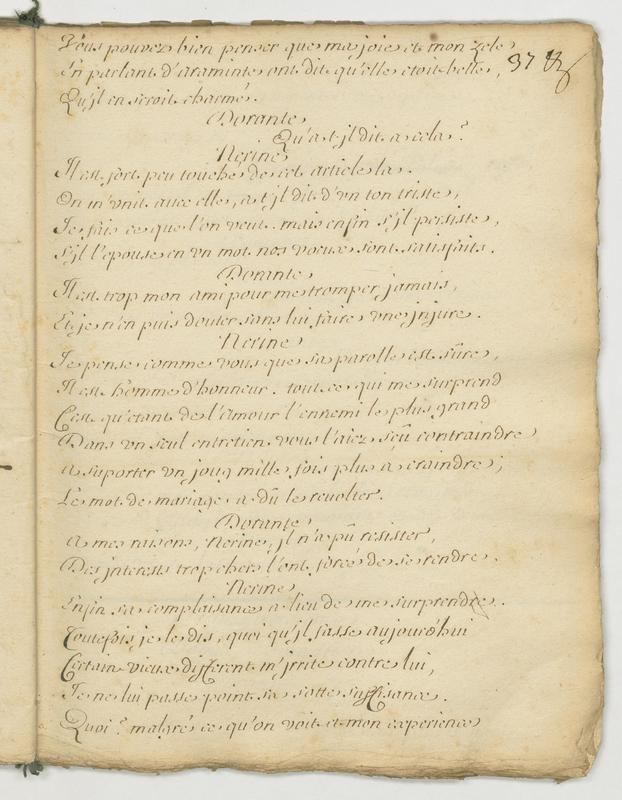 Vous pouvez bien penser que ma joie et mon zele
En parlant d'araminte ont dit qu'elle etoit belle, 37
Qu'jl en seroit charmé.
Dorante
Qu'a t jl dit a cela?
Nerine
Jl est fort peu touché de cet article la.
On m'vnit avec elle, a t jl dit d'vn ton triste,
Je fais ce que l'on veut. mais enfin s'jl persiste,
S'jl l'epouse en vn mot nos voeux sont satisfaits.
Dorante
Jl est trop mon ami pour me tromper jamais,
Et je n'en puis douter sans lui faire vne jnjure.
Nerine
Je pense comme vous que sa parolle est sûre,
Jl est homme d'honneur. tout ce qui me surprend
C'est qu'etant de l'amour l'ennemi le plus grand
Dans vn seul entretien vous l'aiez sçû contraindre
a suporter vn joug mille fois plus a craindre;
Le mot de mariage a dû le revolter.
Dorante
a mes raisons, Nerine, jl n'a pû resister,
Des jnterests trop chers l'ont forcé de se rendre.
Nerine
Enfin sa complaisance a lieu de me surprendre.
Toutefois je le dis, quoi qu'jl fasse aujourd'hui
Certain vieux different m'jrrite contre lui,
Je ne lui passe point sa sotte suffisance.
Quoi? malgré ce qu'on voit et mon experience